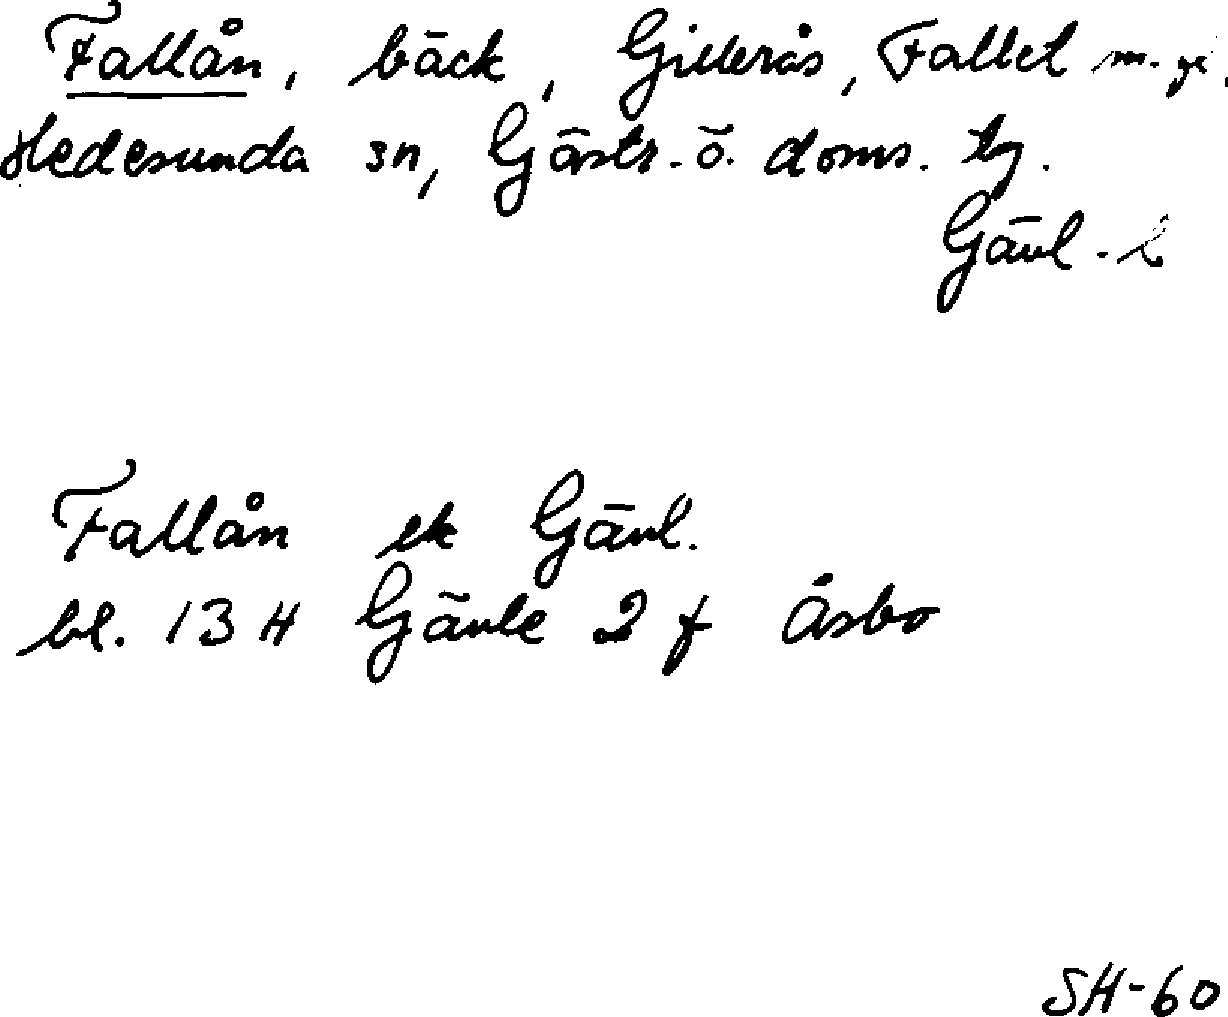 Fallån, bäck, Gillerås, Fallet m. gd.
Hedesunda sn, Gästr. ö. doms. tg.
Gävl. l
Fallån ek Gävl.
bl. 13 H Gävle 2 f Åsbo
SH-60